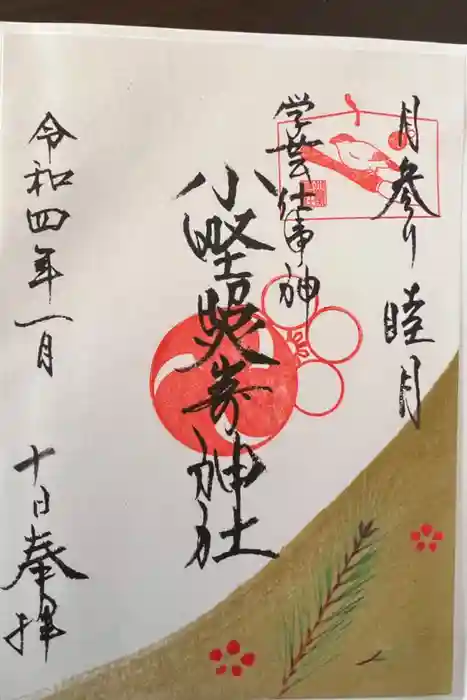 月参り 睦月
学芸仕事の神
小野照崎神社
令和四年一月
十日奉拝